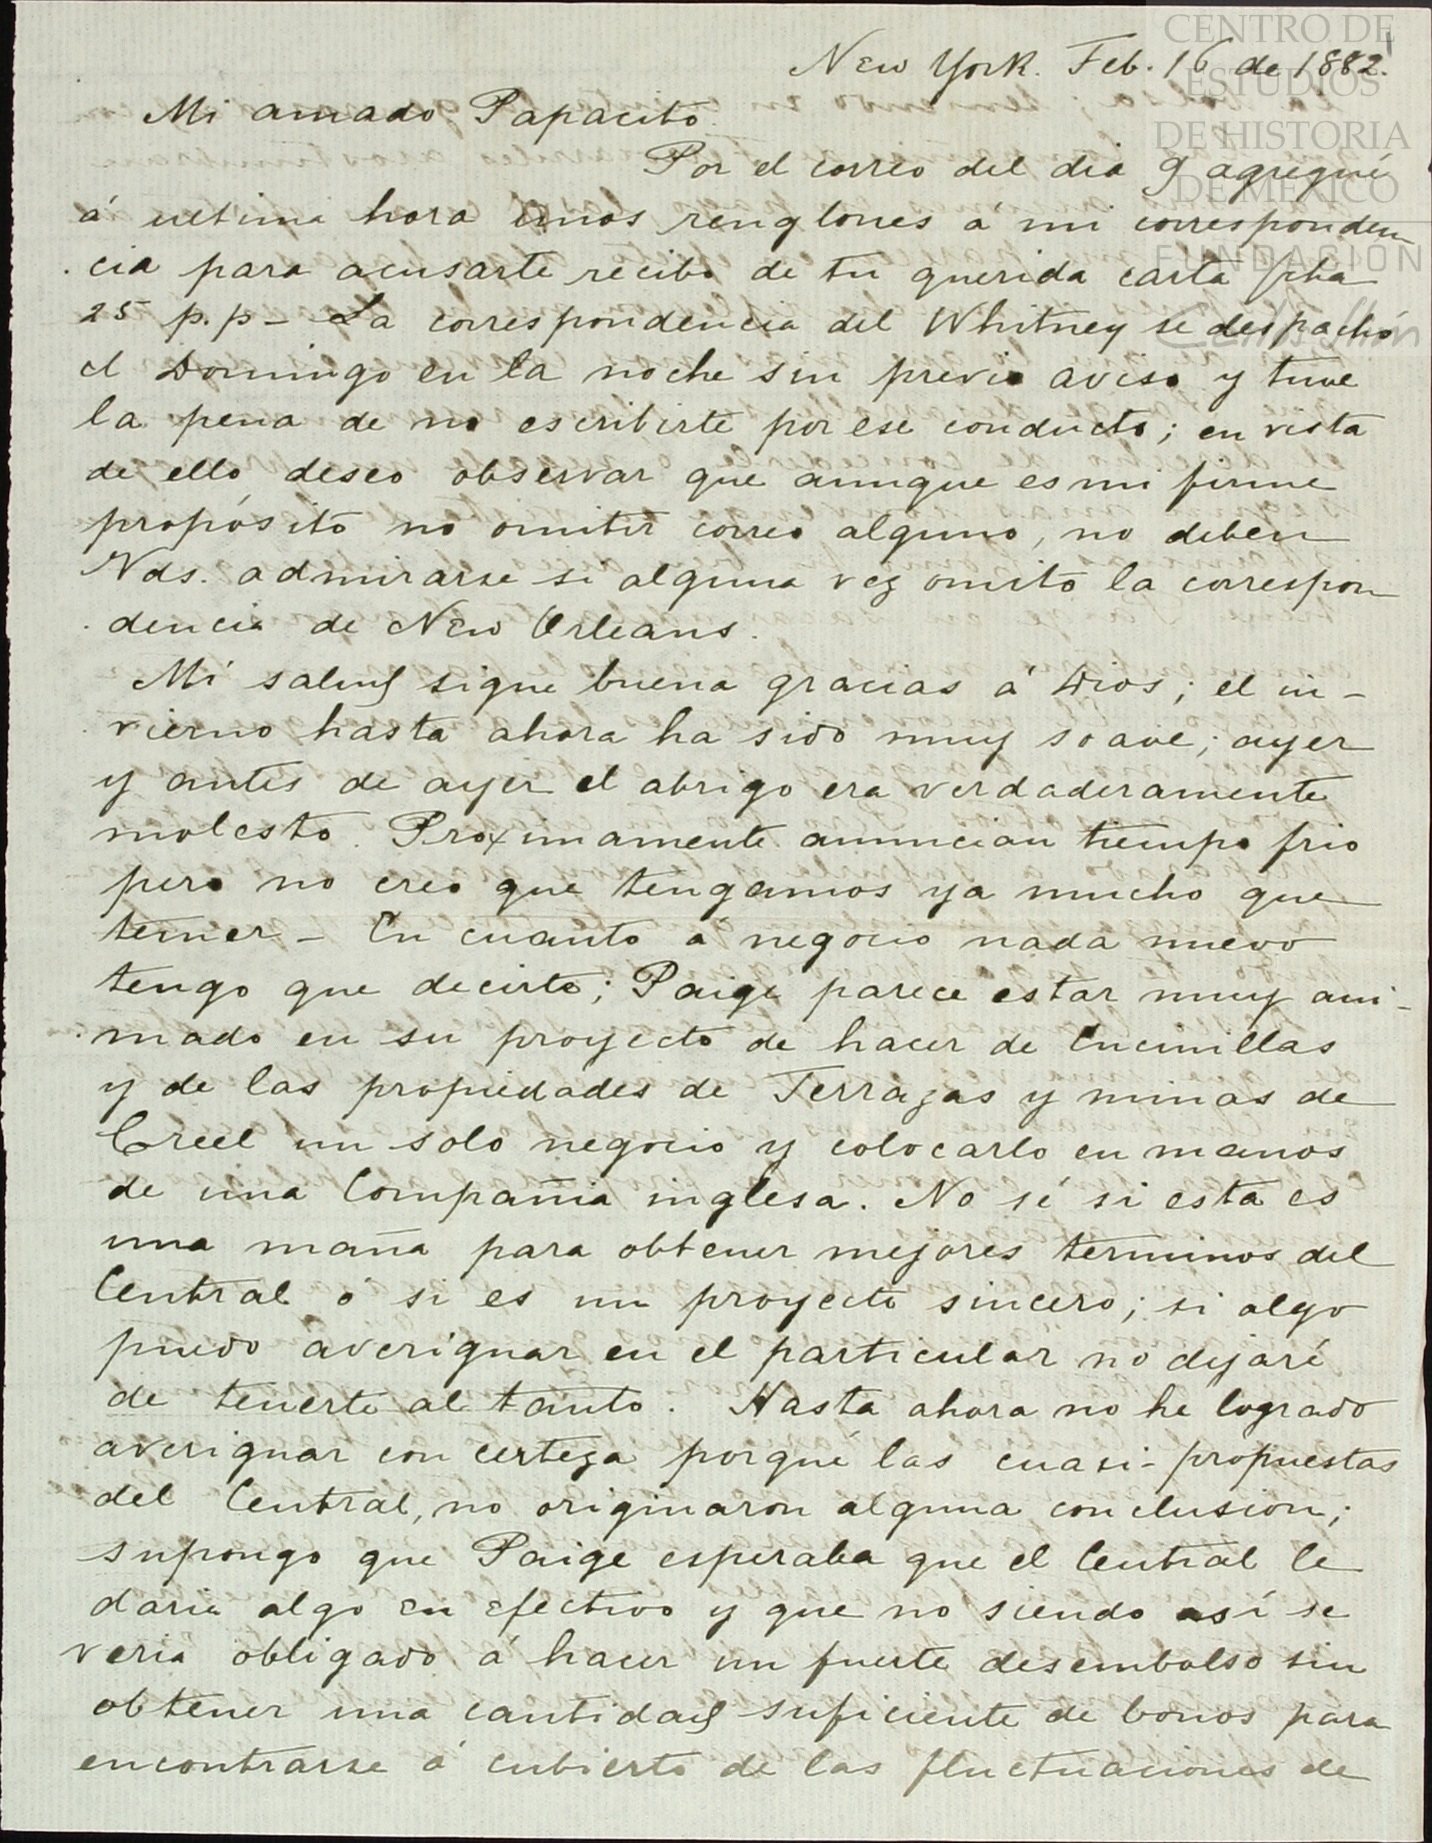 CENTRO DE
ESTUDIOS
DE HISTORIA
DE MEXICO
FUNDACIÓN
Carlos Slim
New York. Feb. 16 de 1882.
Mi amado Papacito.
Por el correo del dia 9 agregué
á ultima hora unos renglones á mi corresponden
cia para acusarte recibo de tu querida carta fcha
25 p.p - La correspondencia del Whitney se despachó
el Domingo en la noche sin previo aviso y tuve
la pena de no escribirte por ese conducto; en vista
de ello deseo observar que aunque es mi firme
propósito no omitir correo alguno, no deben
Vds. admirarse si alguna vez omito la correspon
dencia de New Orleans.
Mi salud sigue buena gracias á Dios; el in-
vierno hasta ahora ha sido muy soave; ayer
y antes de ayer el abrigo era verdaderamente
molesto. Proximamente anuncian tiempo frio
pero no creo que tengamos ya mucho que
temer - En cuanto á negocio nada nuevo
tengo que decirte; Paige parece estar muy ani-
mado en su proyecto de hacer de Encinillas
y de las propiedades de Terrazas y minas de
Creel un solo negocio y colocarlo en manos
de una Compañia inglesa. No sé si esta es
una maña para obtener mejores terminos del
Central ó si es un proyecto sincero; si algo
puedo averiguar en el particular no dejaré
de tenerte al tanto. Hasta ahora no he logrado
averiguar con certeza porqué las cuasi-propuestas
del Central, no originaron alguna conclusion;
supongo que Paige esperaba que el Central le
daria algo en efectivo y que no siendo así se
veria obligado á hacer un fuerte desembolso sin
obtener una cantidad suficiente de bonos para
encontrarse á cubierto de las fluctuaciones de